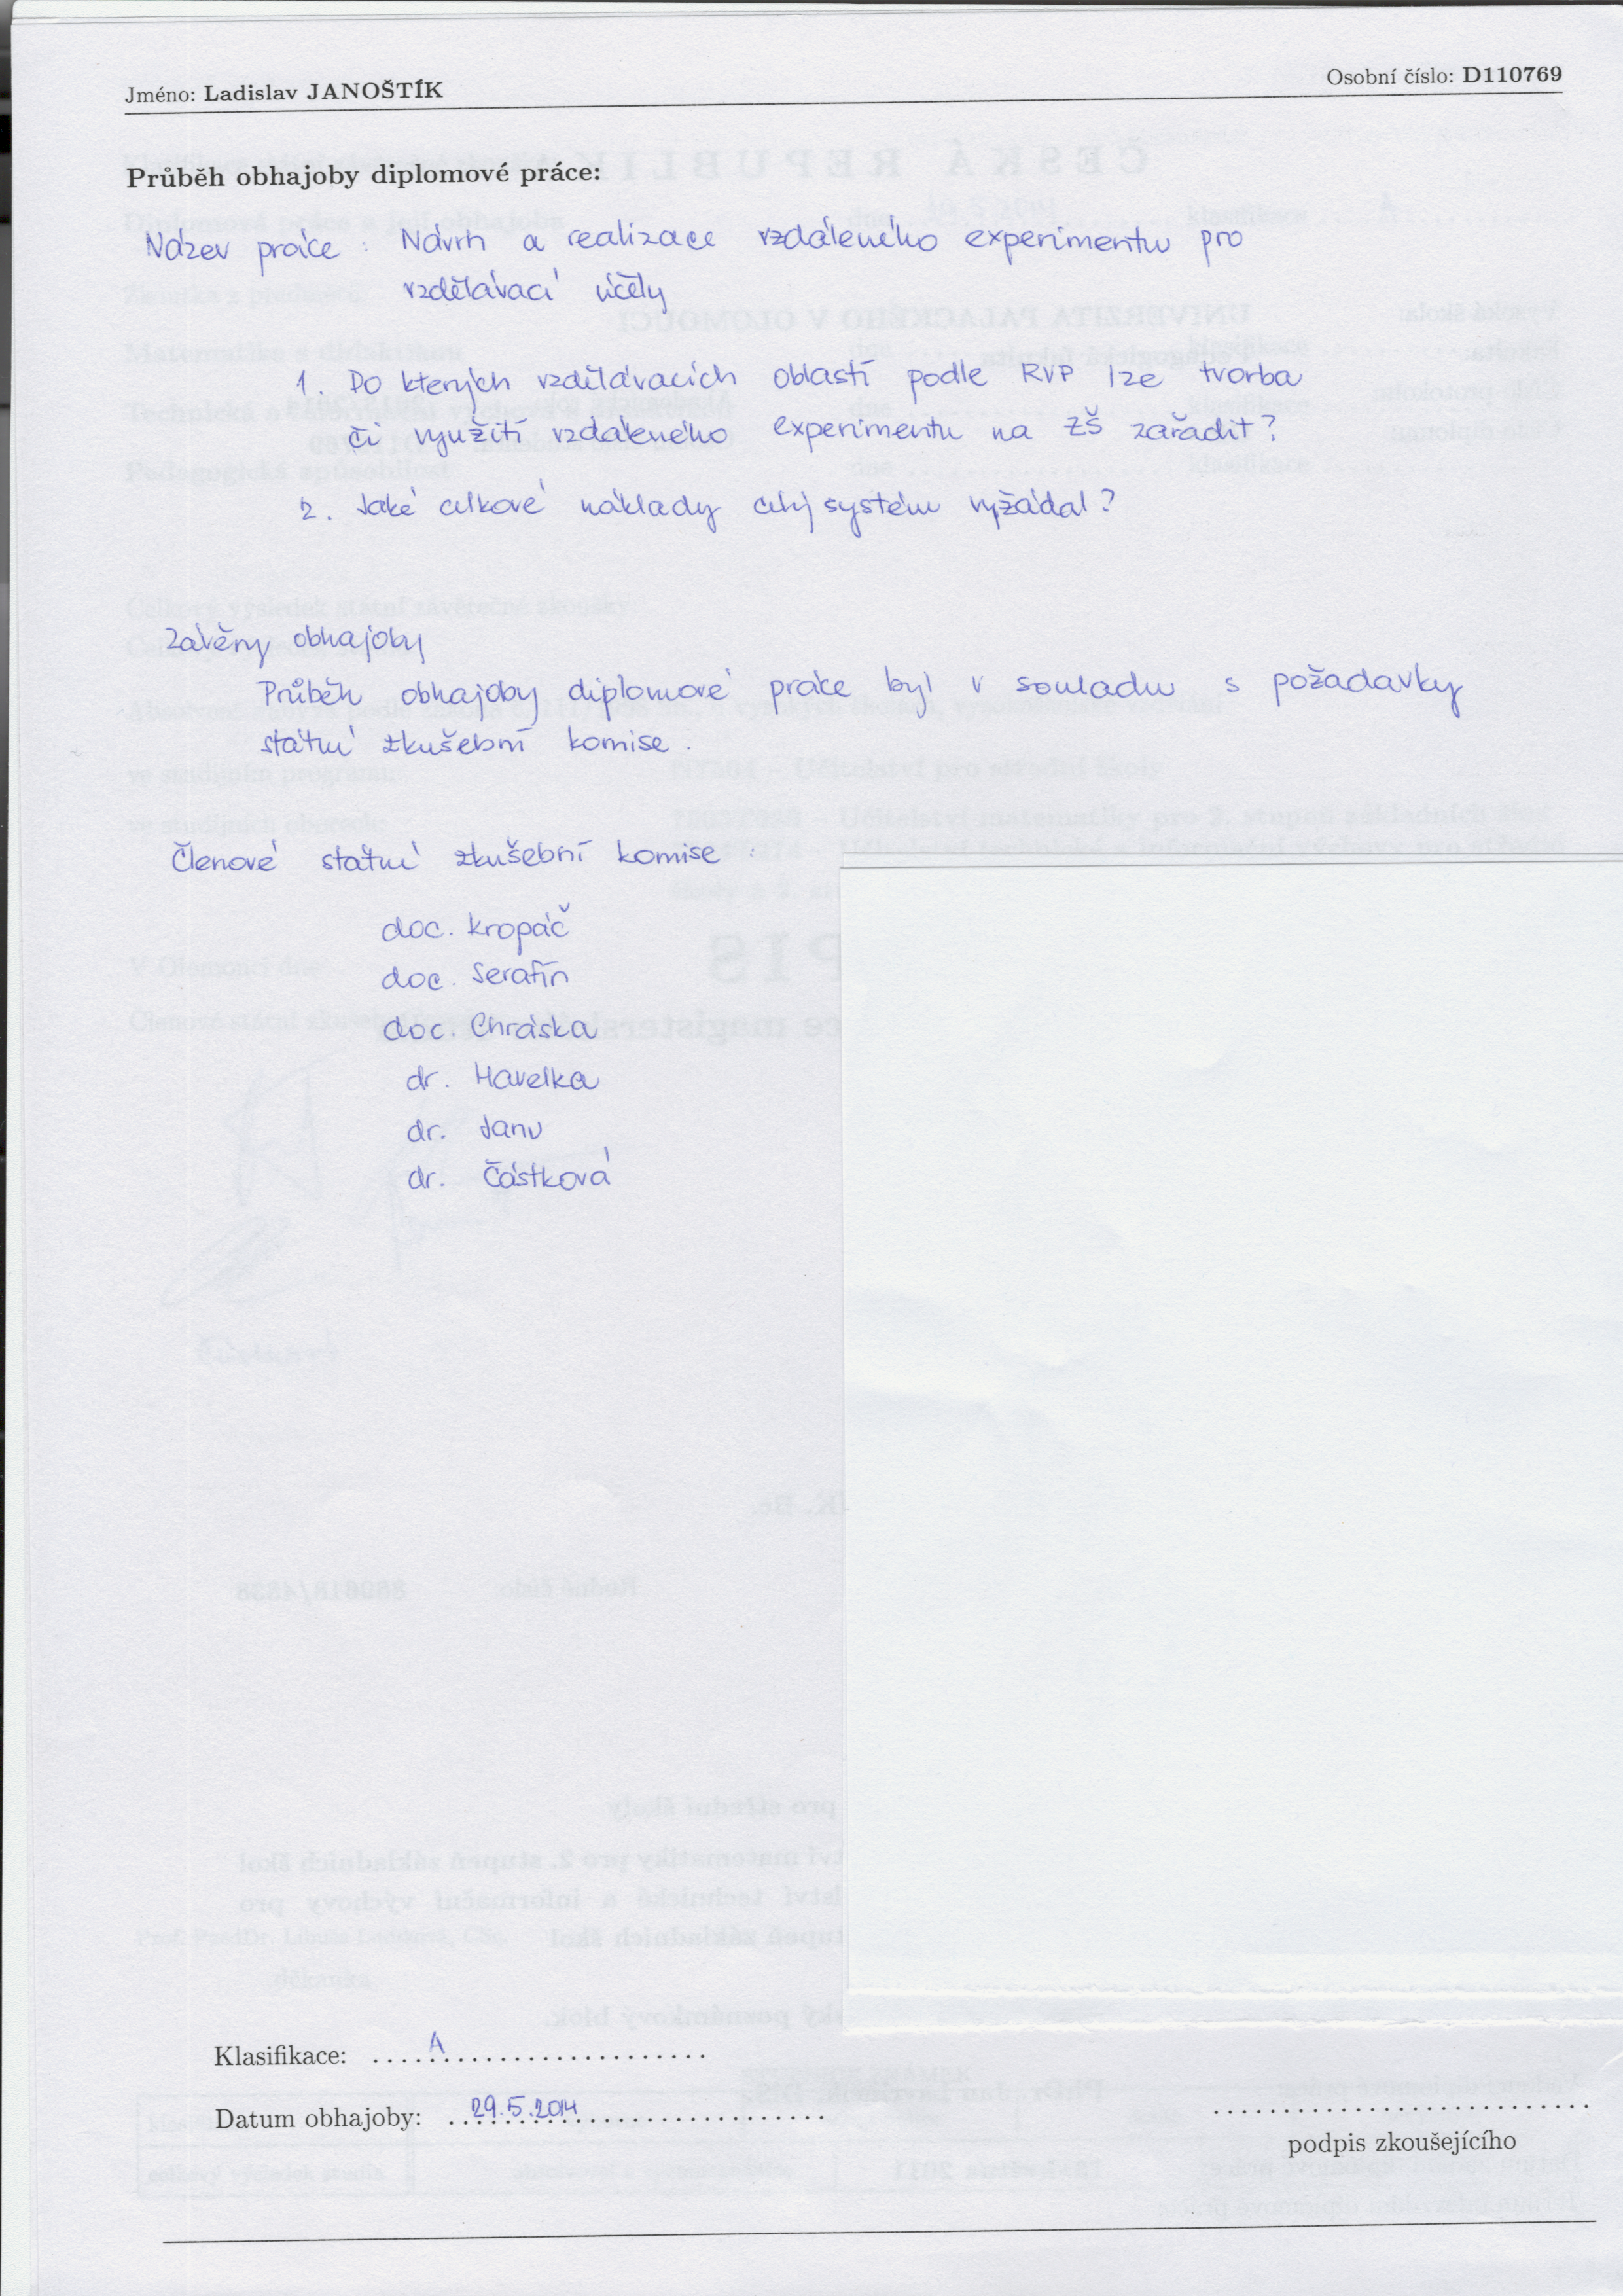 Jméno: Ladislav JANOŠTÍK Osobní číslo: D110769
Průběh obhajoby diplomové práce:
Název práce : Návrh a realizace vzdáleného experimentu pro
vzdělávací účely
1. Do kterých vzdělávacích oblastí podle RVP lze tvorba
či využití vzdáleného experimentu na ZŠ zařadit?
2. Jaké celkové náklady celý systém vyžádal?
Závěry obhajoby
Průběh obhajoby diplomové práce byl v souladu s požadavky
státní zkušební komise.
Členové státní zkušební komise :
doc. Kropáč
doc. Serafín
doc. Chráska
dr. Havelka
dr. Janu
dr. Částková
Klasifikace: A
Datum obhajoby: 29.5.2014
podpis zkoušejícího